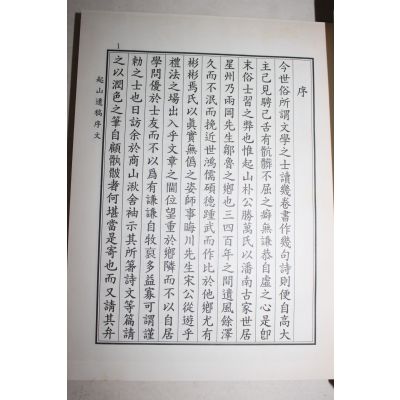 序
今世俗所謂文學之士讀幾卷書作幾句詩則便自高大
主己見騁己舌有骯髒不屈之癖無謙恭自虛之心是卽
末俗士習之弊也惟起山朴公勝萬氏以潘南古家世居
星州乃兩岡先生鄒魯之鄕也三四百年之間遺風餘澤
久而不泯而挽近世鴻儒碩德踵武而作比於他鄕尤有
彬彬焉氏以眞實無僞之姿師事晦川先生宋公從遊乎
禮法之場出入乎文章之闥位望重於鄕隣而不以自居
學問優於士友而不以爲有謙謙自牧裒多益寡可謂謹
勅之士也日訪余於商山湫舍袖示其所纂詩文等篇請
之以潤色之筆自顧骩骳者何堪當是寄也而又請其弁
起山遺稿序文